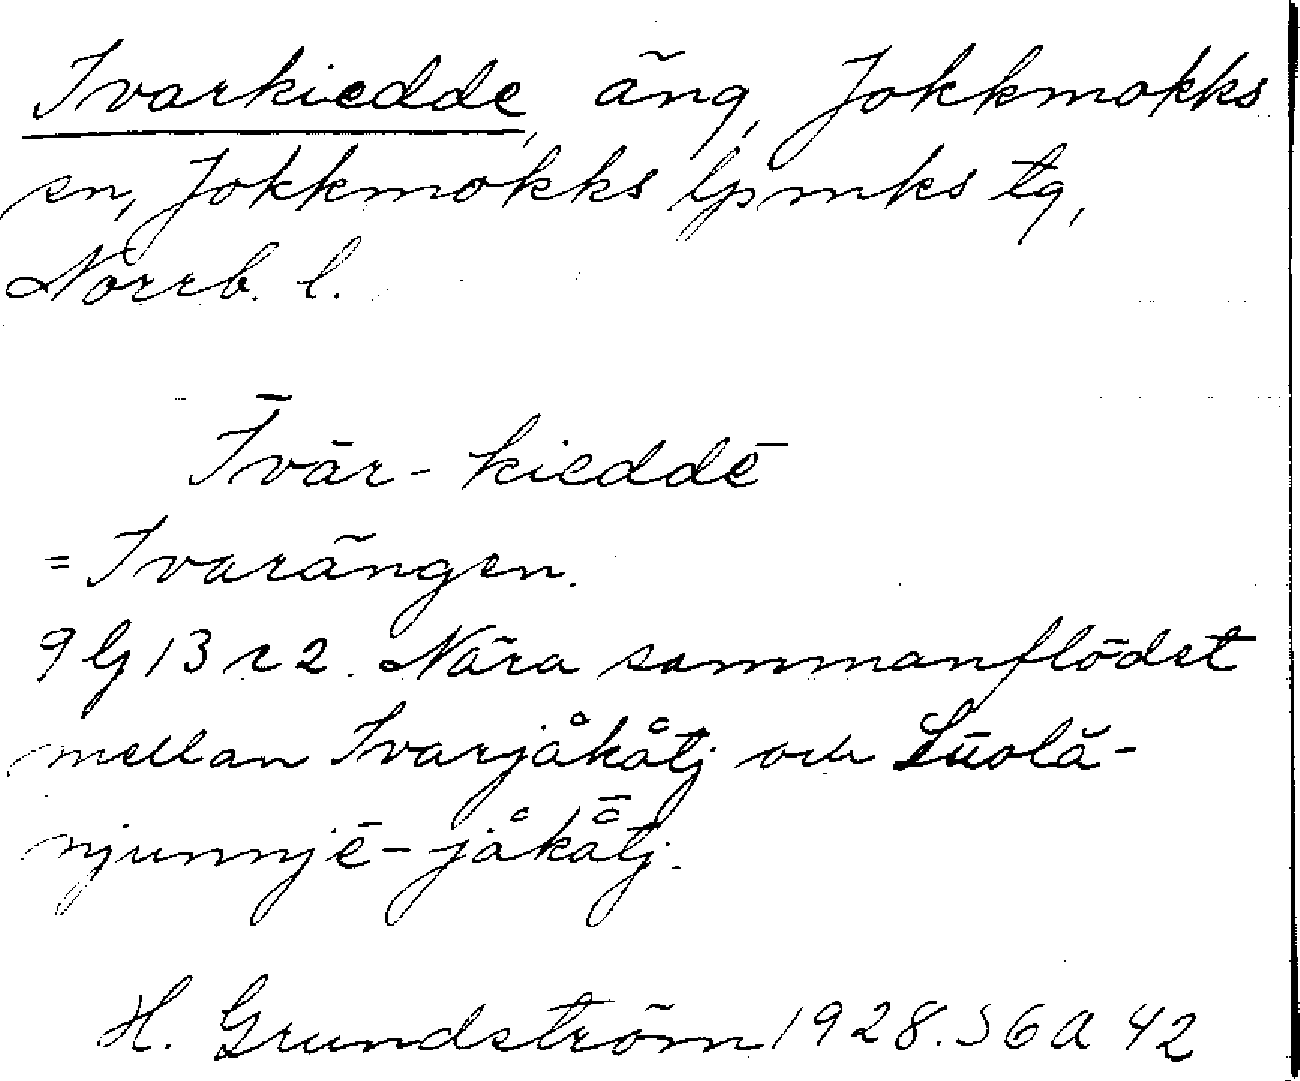 Ivarkiedde, äng, Jokkmokks
sn, Jokkmokks lpmks tg,
Norrb. l.
Īvār-kieddē
= Ivarängen.
9 lj 13 r 2. Nära sammanflödet
mellan Ivarjåkåtj och Lūolā-
njunnjē-jåkå̄tj.
H. Grundström 1928. S6A 42